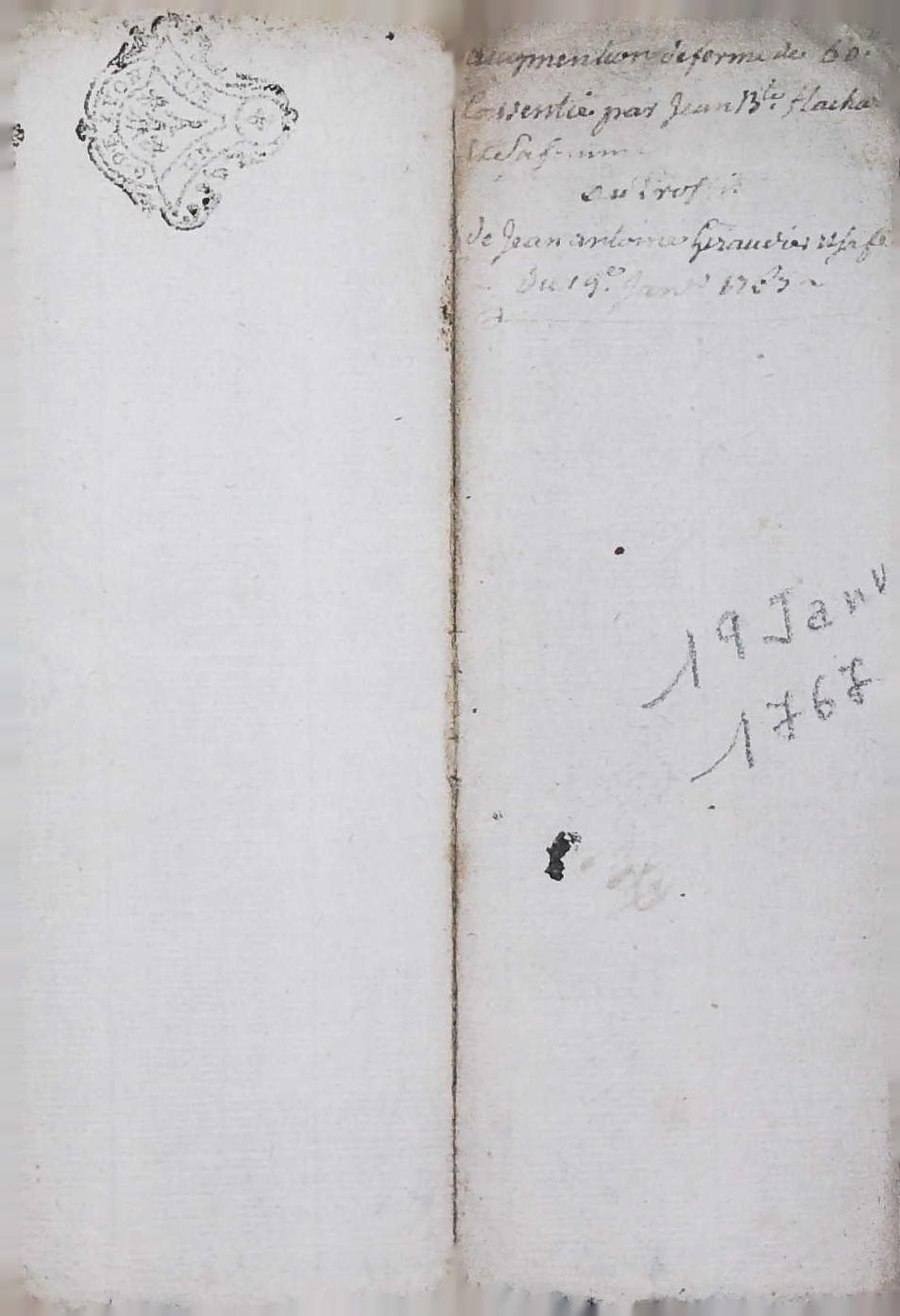 augmention de ferme de 60#
Consentie par Jean Bte flacha
et Sa femme
au Profit
de Jean antoine Giraudier et sa fe
Du 19e Janv 1767
19 Janv
1767